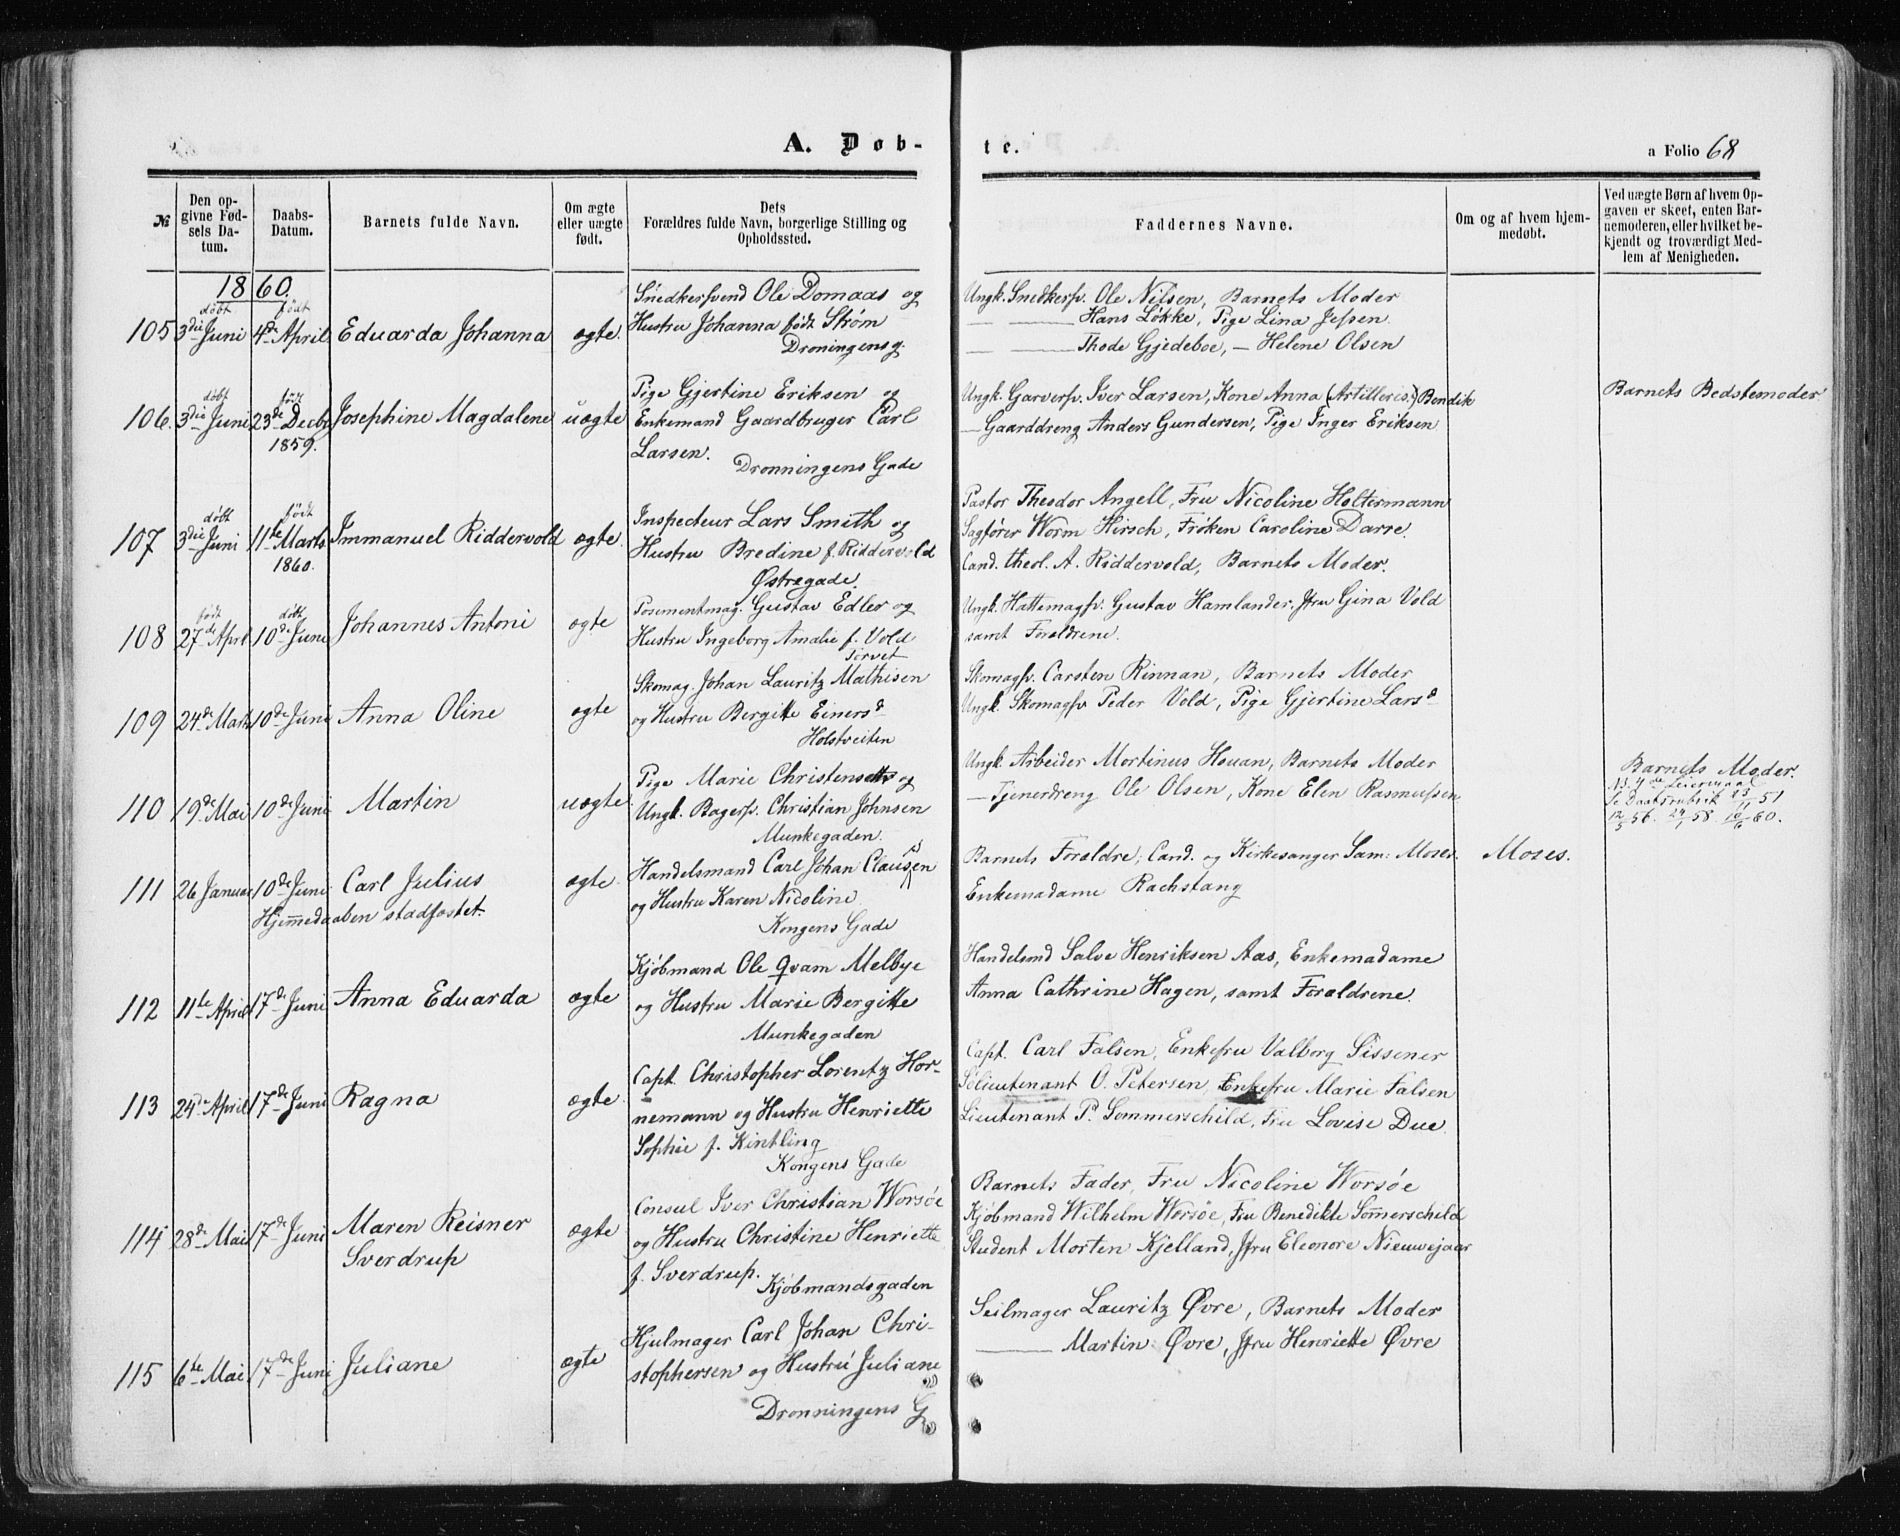 A. Døb-
te.
a Folio 68
№
Den op-
givne Fød-
sels Da-
tum.
Daabs-
Datum.
Barnets fulde Navn.
Om ægte
eller uægte
født.
Dets
Forældres fulde Navn, borgerlige Stilling og
Opholdssted.
Faddernes Navne.
Om og af hvem hjem-
medøbt.
Ved uægte Børn af hvem Op-
gaven er skeet, enten Bar-
nemoderen, eller hvilket be-
kjendt og troværdigt Med-
lem af Menigheden.
1860.
105 døbt 3die Juni født 4de April Eduarda Johanna ægte.
Snedkersvend Ole Domaas og
Hustru Johanna født Strøm
Droningensg.
Ungk. Snedkersv. Ole Nilsen, Barnets Moder
— — Hans Løkke, Pige Lina Jessen.
— — Thode Gjedeboe, — Helene Olsen
106. døbt 3die Juni født 23de Decbr 1859. Josephine Magdalene uægte
Pige Gjertine Eriksen og
Enkemand Gaardbruger Carl
Larsen.
Dronningens Gade
Ungk. Garversv. Iver Larsen, Kone Anna (Artilleris.) Bendik
— Gaarddreng Anders Gundersen, Pige Inger Eriksen
Barnets Bedstemoder
107 døbt 3die Juni født 11te Marts 1860. Immanuel Riddervold ægte.
Inspecteur Lars Smith og
Hustru Bredine f. Riddervold
Østregade.
Pastor Theodor Angell, Fru Nicoline Holtermann
Sagfører Worm Hirsch, Frøken Caroline Darre.
Cand. theol. A. Riddervold, Barnets Moder.
108 født 27de April døbt 10de Juni Johannes Antoni ægte
Posementmag. Gustav Edler og
Hustru Ingeborg Amalie f. Vold
Torvet
Ungk. Hattemagsv. Gustav Hamlander. Jfru Gina Vold
samt Forældrene.
109 24de Marts 10de Juni Anna Oline ægte
Skomag. Johan Lauritz Mathisen
og Hustru Bergitte Einersd
Holstveiten
Skomagsv. Carsten Rinnan, Barnets Moder
Ungk. Skomagsv Peder Vold, Pige Gjertine Larsd
110 19de Mai 10de Juni Martin uægte.
Pige Marie Christensen og
Ungk. Bagersv. Christian Johnsen
Munkegaden.
Ungk. Arbeider Mortinus Houan, Barnets Moder
— Tjenerdreng Ole Olsen, Kone Elen Rasmussen
Barnets Moder.
N.B. 4de Leiermaal
Se Daabsrubrik 23/11 51
12/5 56. 24/1 58. 10/6 60.
111 26 Januar 10de Juni Carl Julius ægte.
Hjemmedaaben stadfæstet.
Handelsmand Carl Johan Clausen
og Hustru Karen Nicoline
Kongens Gade
Barnets Forældre; Cand. og Kirkesanger Sam: Moses.
Enkemadame Rachstang
Moses.
112 11te April 17de Juni Anna Eduarda ægte
Kjøbmand Ole Qvam Melbye
og Hustru Marie Bergitte
Munkegaden
Handelsmd Salve Henriksen Aas, Enkemadame
Anna Cathrine Hagen, samt Forældrene.
113 24de April 17de Juni Ragna ægte.
Capt. Christopher Lorentz Hor-
nemann og Hustru Henriette
Sophie f. Kintling
Kongens Gade
Capt. Carl Falsen, Enkefru Valborg Sissener
Sølieutenant O. Petersen, Enkefru Marie Falsen
Lieutenant P. Sommerschild, Fru Lovise Due
114 28de Mai 17de Juni Maren Reisner ægte
Sverdrup
Consul Iver Christian Worsøe
og Hustru Christine Henriette
f. Sverdrup.
Kjøbmandsgaden
Barnets Fader, Fru Nicoline Worsøe
Kjøbmand Wilhelm Worsøe, Fru Benedikte Sommerschild
Student Morten Kjelland, Jfru Eleonore Nieuwejaar
115 6te Mai 17de Juni Juliane ægte
Hjulmager Carl Johan Chri-
stophersen og Hustru Juliane
Dronningens G
Seilmager Lauritz Øvre, Barnets Moder
— Martin Øvre, Jfru Henriette Øvre